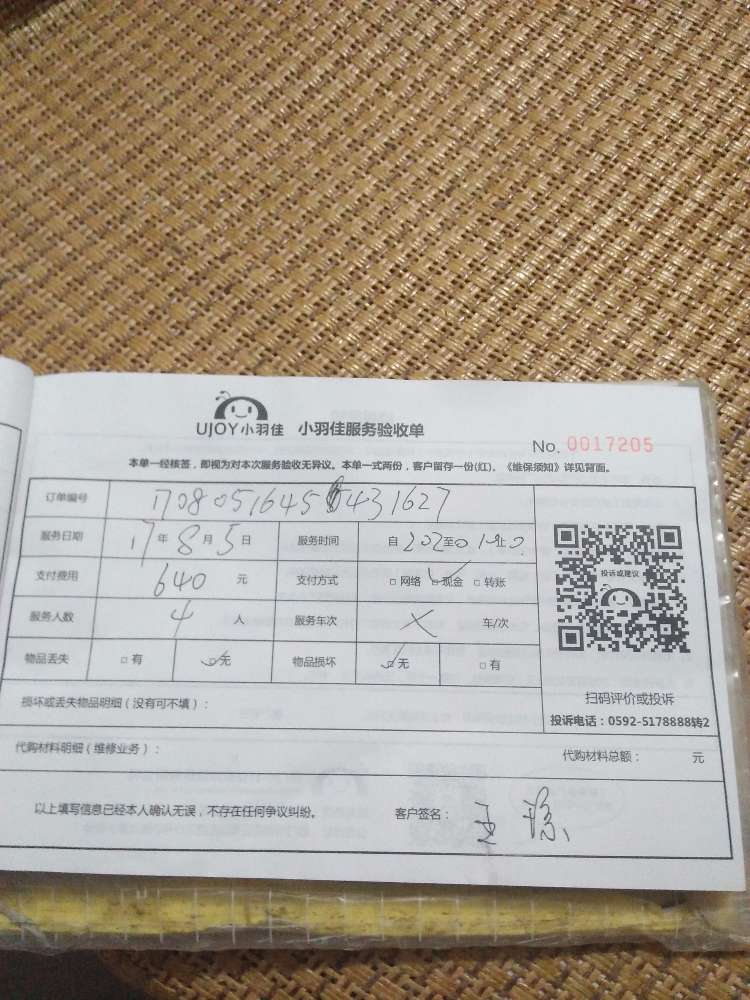 UJOY小羽佳 小羽佳服务验收单
No. 0017205
本单一经核签，即视为对本次服务验收无异议。本单一式两份，客户留存一份(红)、《维保须知》详见背面。
订单编号 170805164 431627
服务日期 17年8月5日 服务时间 自 至 止
支付费用 640 元 支付方式 □网络 ☑现金 □转账
服务人数 4 人 服务车次 × 车/次
物品丢失 □有 ☑无 物品损坏 ☑无 □有
投诉或建议
扫码评价或投诉
投诉电话：0592-5178888转2
损坏或丢失物品明细（没有可不填）：
代购材料明细（维修业务）： 代购材料总额： 元
以上填写信息已经本人确认无误，不存在任何争议纠纷。 客户签名：